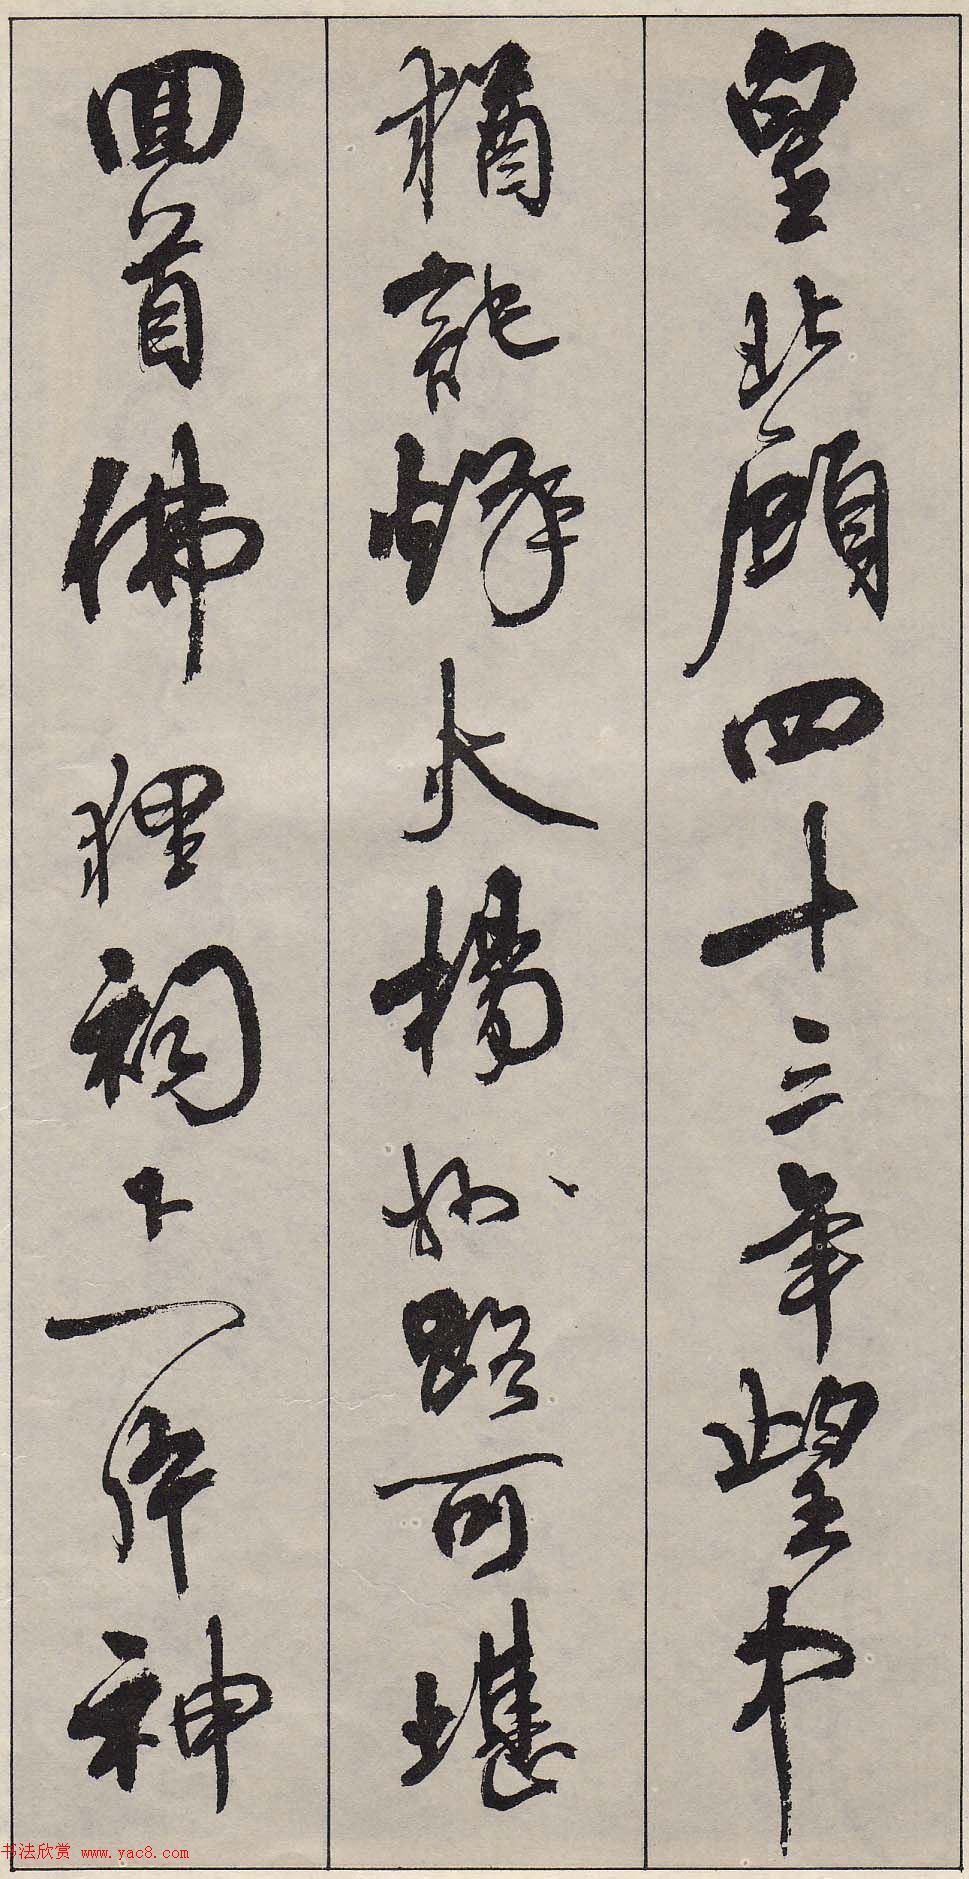 皇北顧四十三年望中
猶記烽火揚州路可堪
回首佛狸祠下一片神
书法欣赏 www.yac8.com